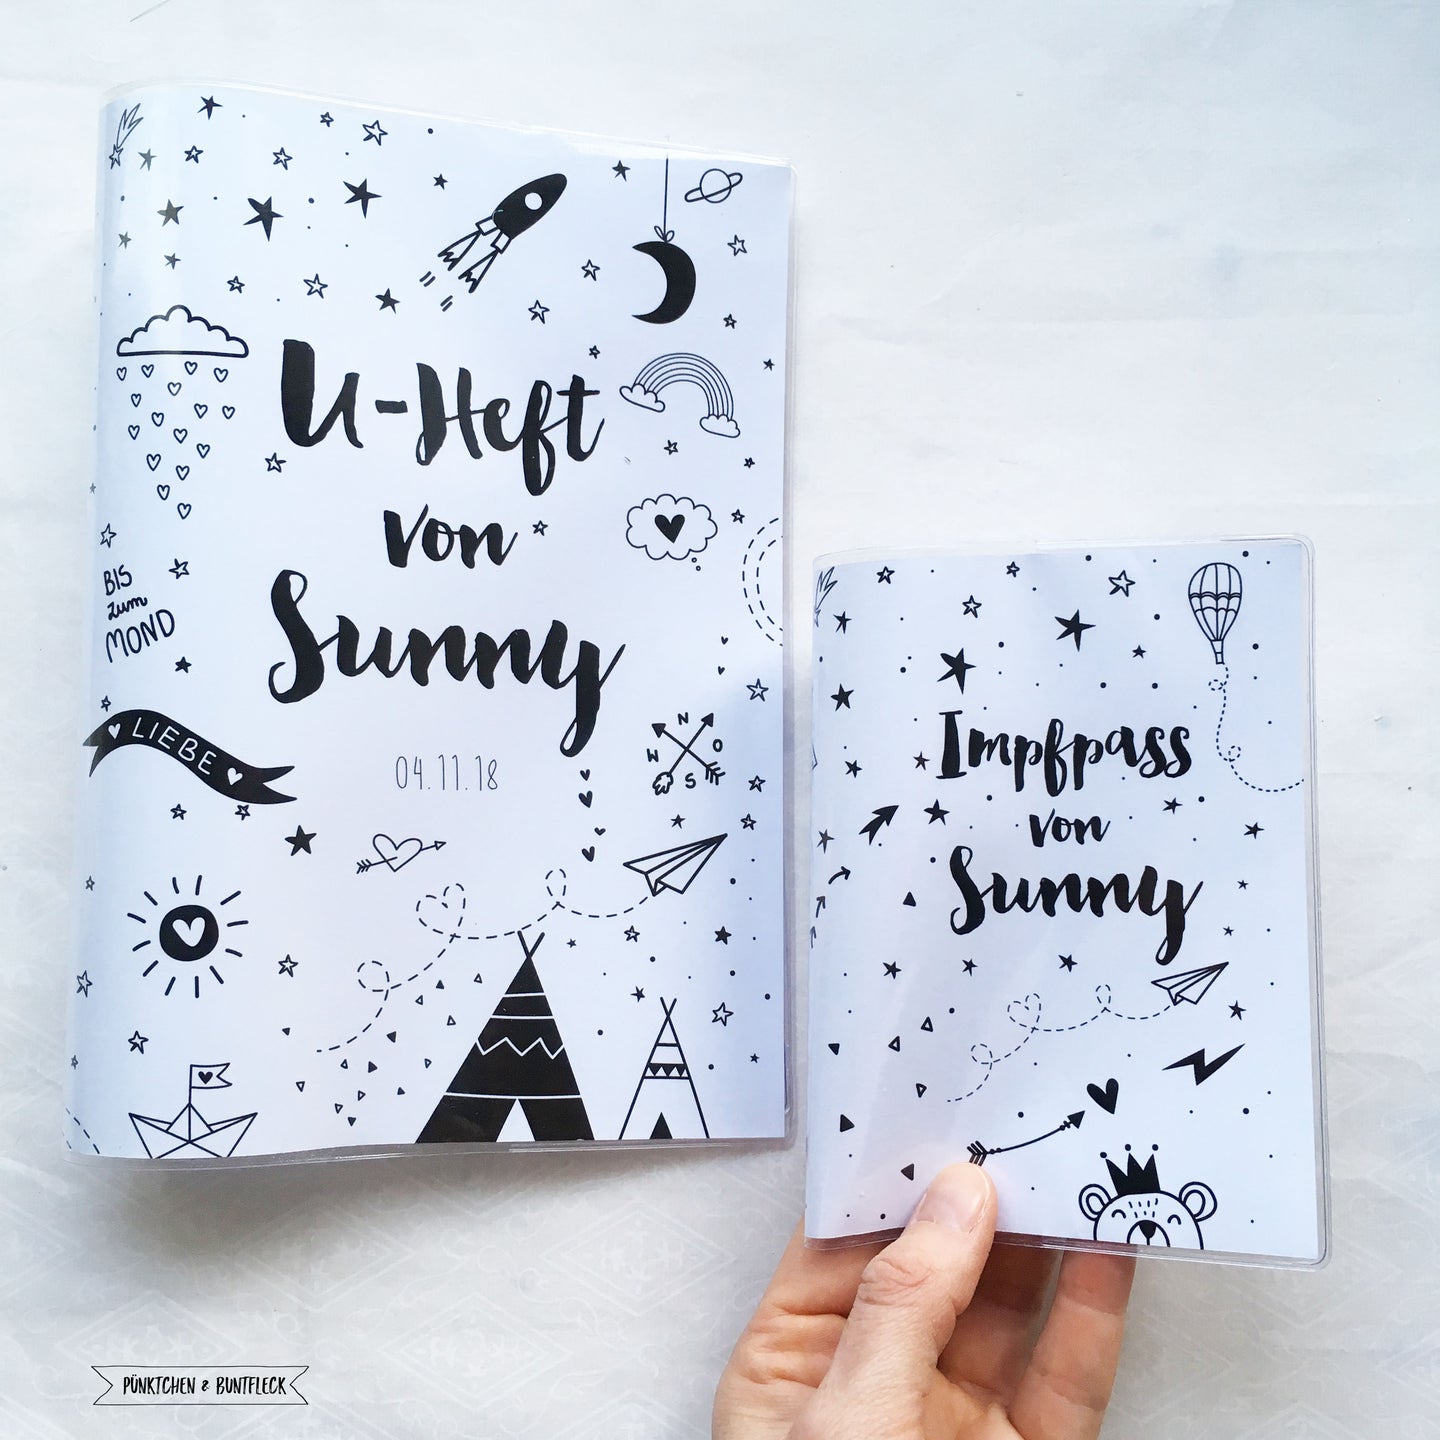 U-Heft
von
Sunny
04.11.18
BIS
zum
MOND
LIEBE
N
W O
S
Impfpass
von
Sunny
PÜNKTCHEN & BUNTFLECK